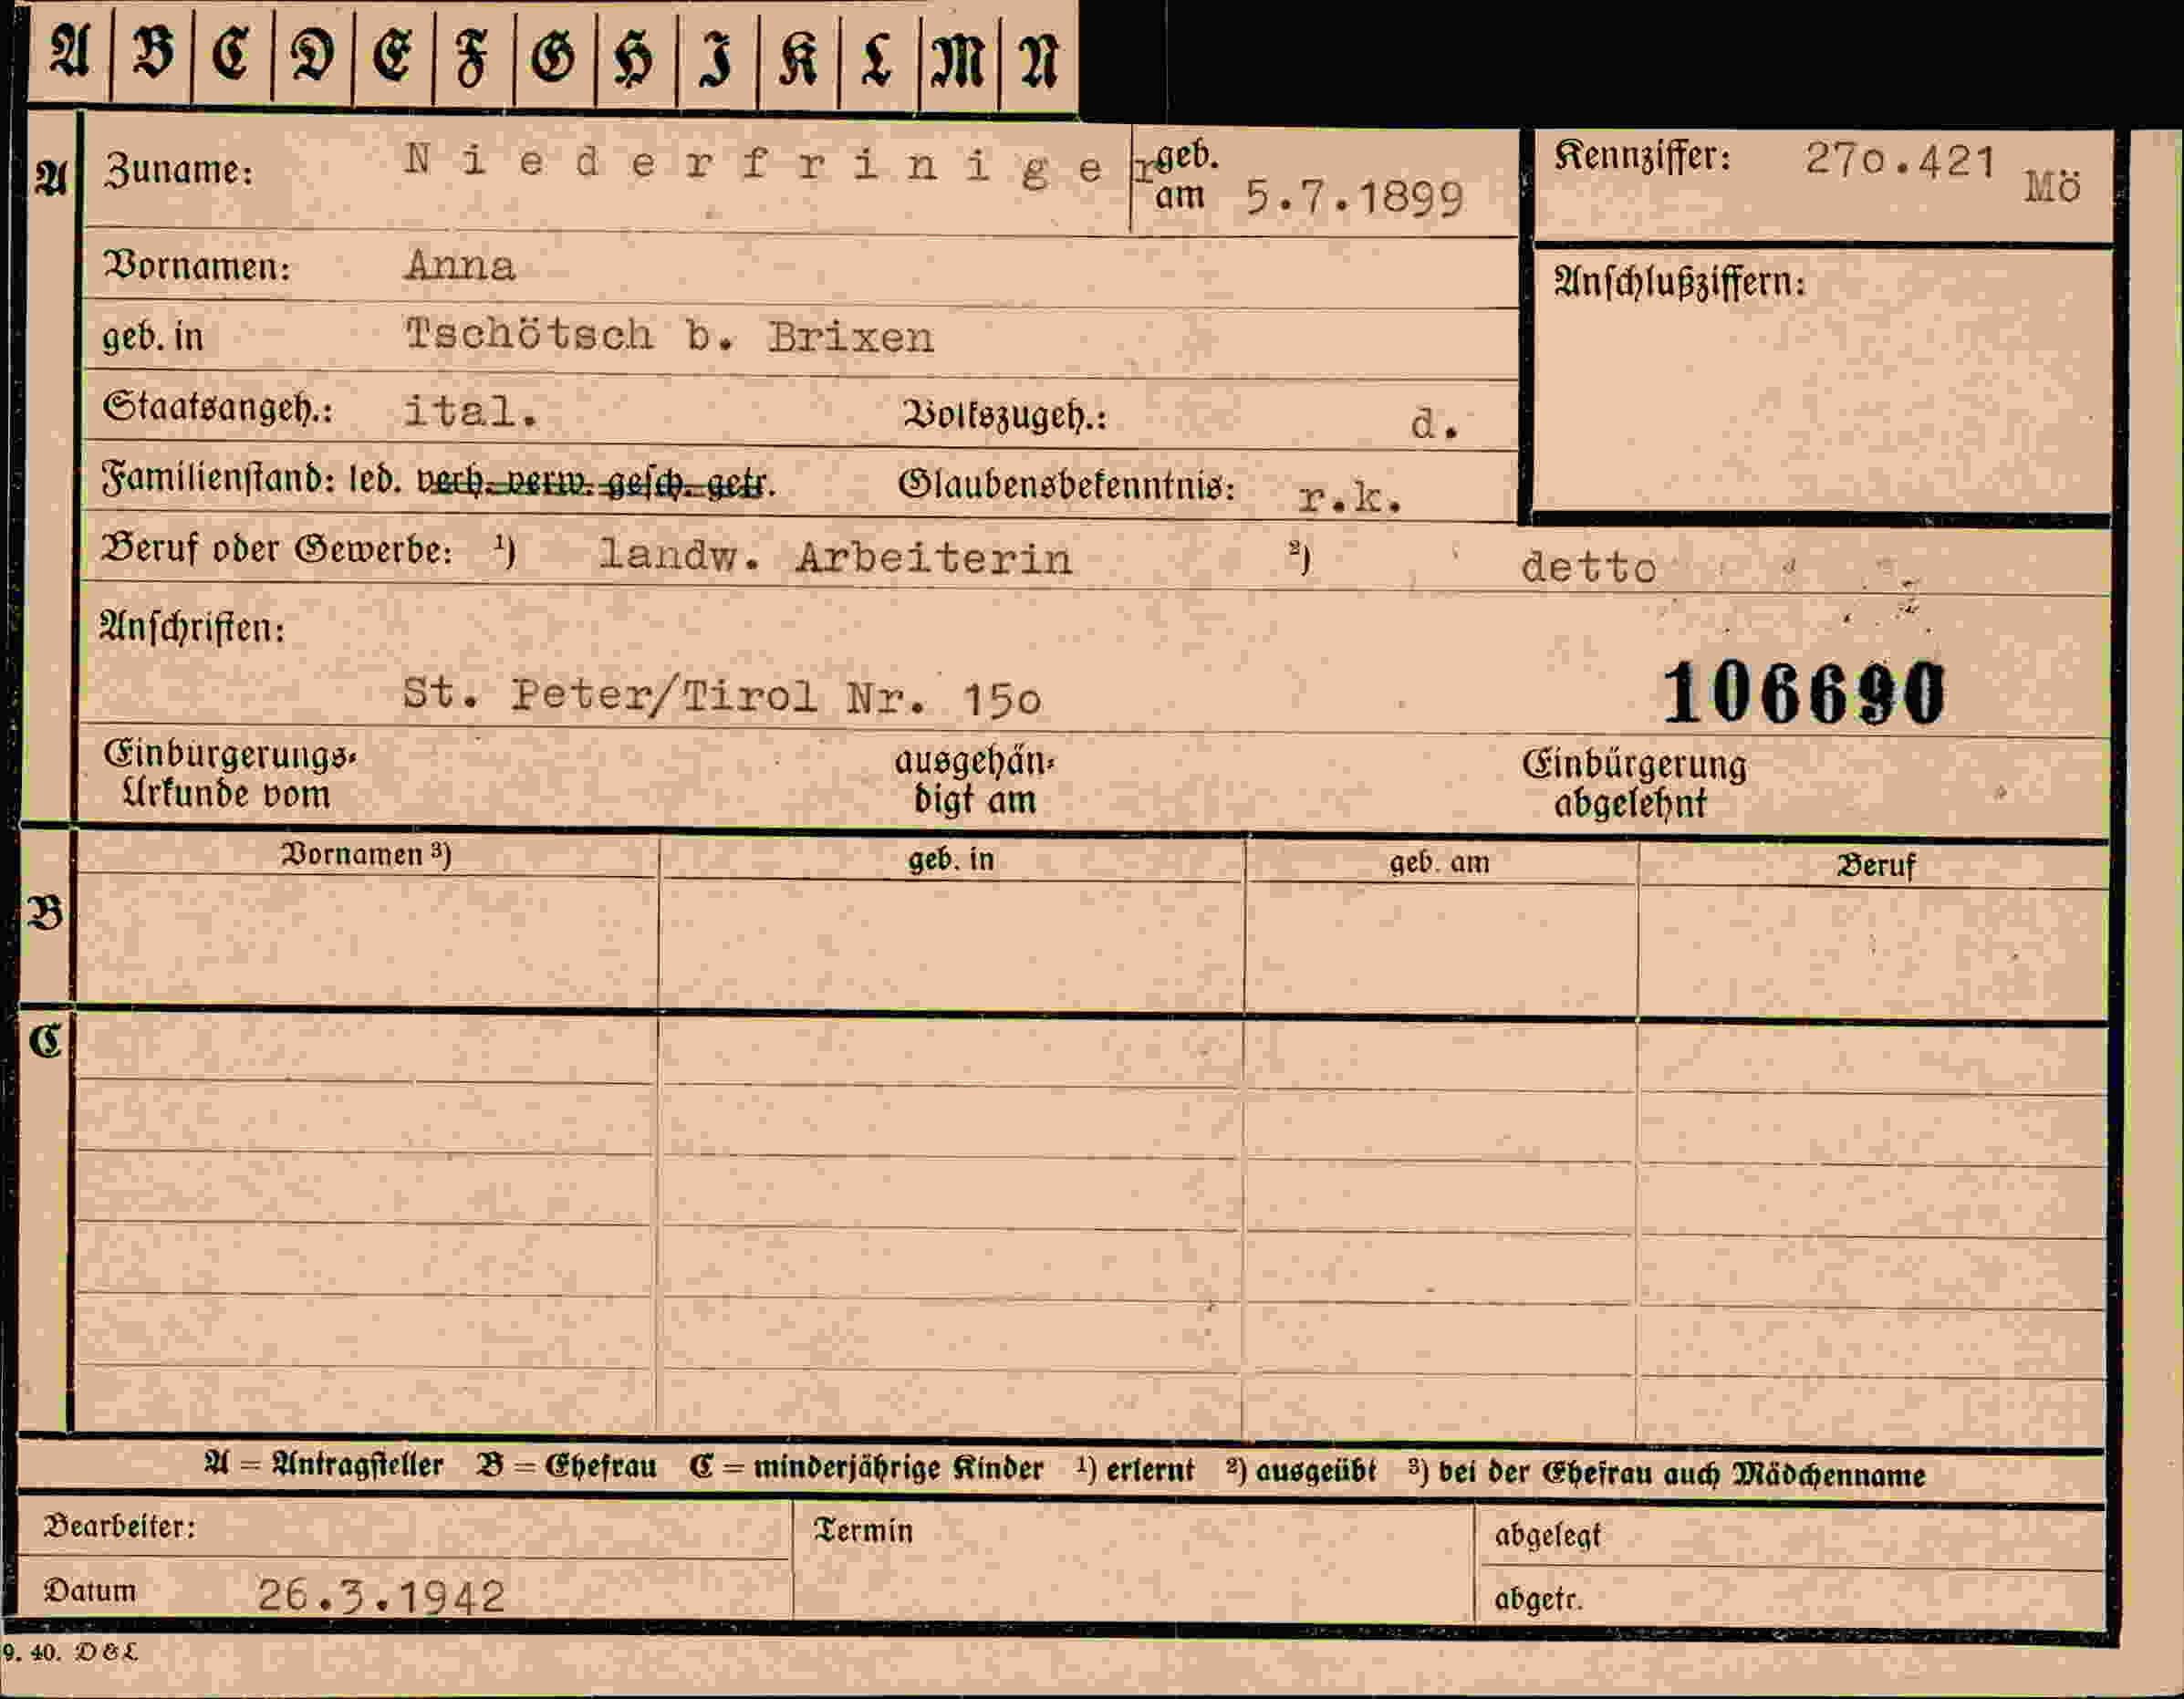 A B C D E F G H I K L M N
A Zuname: Niederfriniger geb. am 5.7.1899 Kennziffer: 270.421 Mö
Vornamen: Anna Anschlußziffern:
geb. in Tschötsch b. Brixen
Staatsangeh.: ital. Volkszugeh.: d.
Familienstand: led. verh. verw. gesch. getr. Glaubensbekenntnis: r.k.
Beruf oder Gewerbe: ¹) landw. Arbeiterin ²) detto
Anschriften:
St. Peter/Tirol Nr. 150 106690
Einbürgerungs-
Urkunde vom
ausgehän-
digt am
Einbürgerung
abgelehnt
Vornamen ³) geb. in geb. am Beruf
B
C
A = Antragsteller B = Ehefrau C = minderjährige Kinder ¹) erlernt ²) ausgeübt ³) bei der Ehefrau auch Mädchenname
Bearbeiter: Termin abgelegt
Datum 26.3.1942 abgetr.
9. 40. D & L